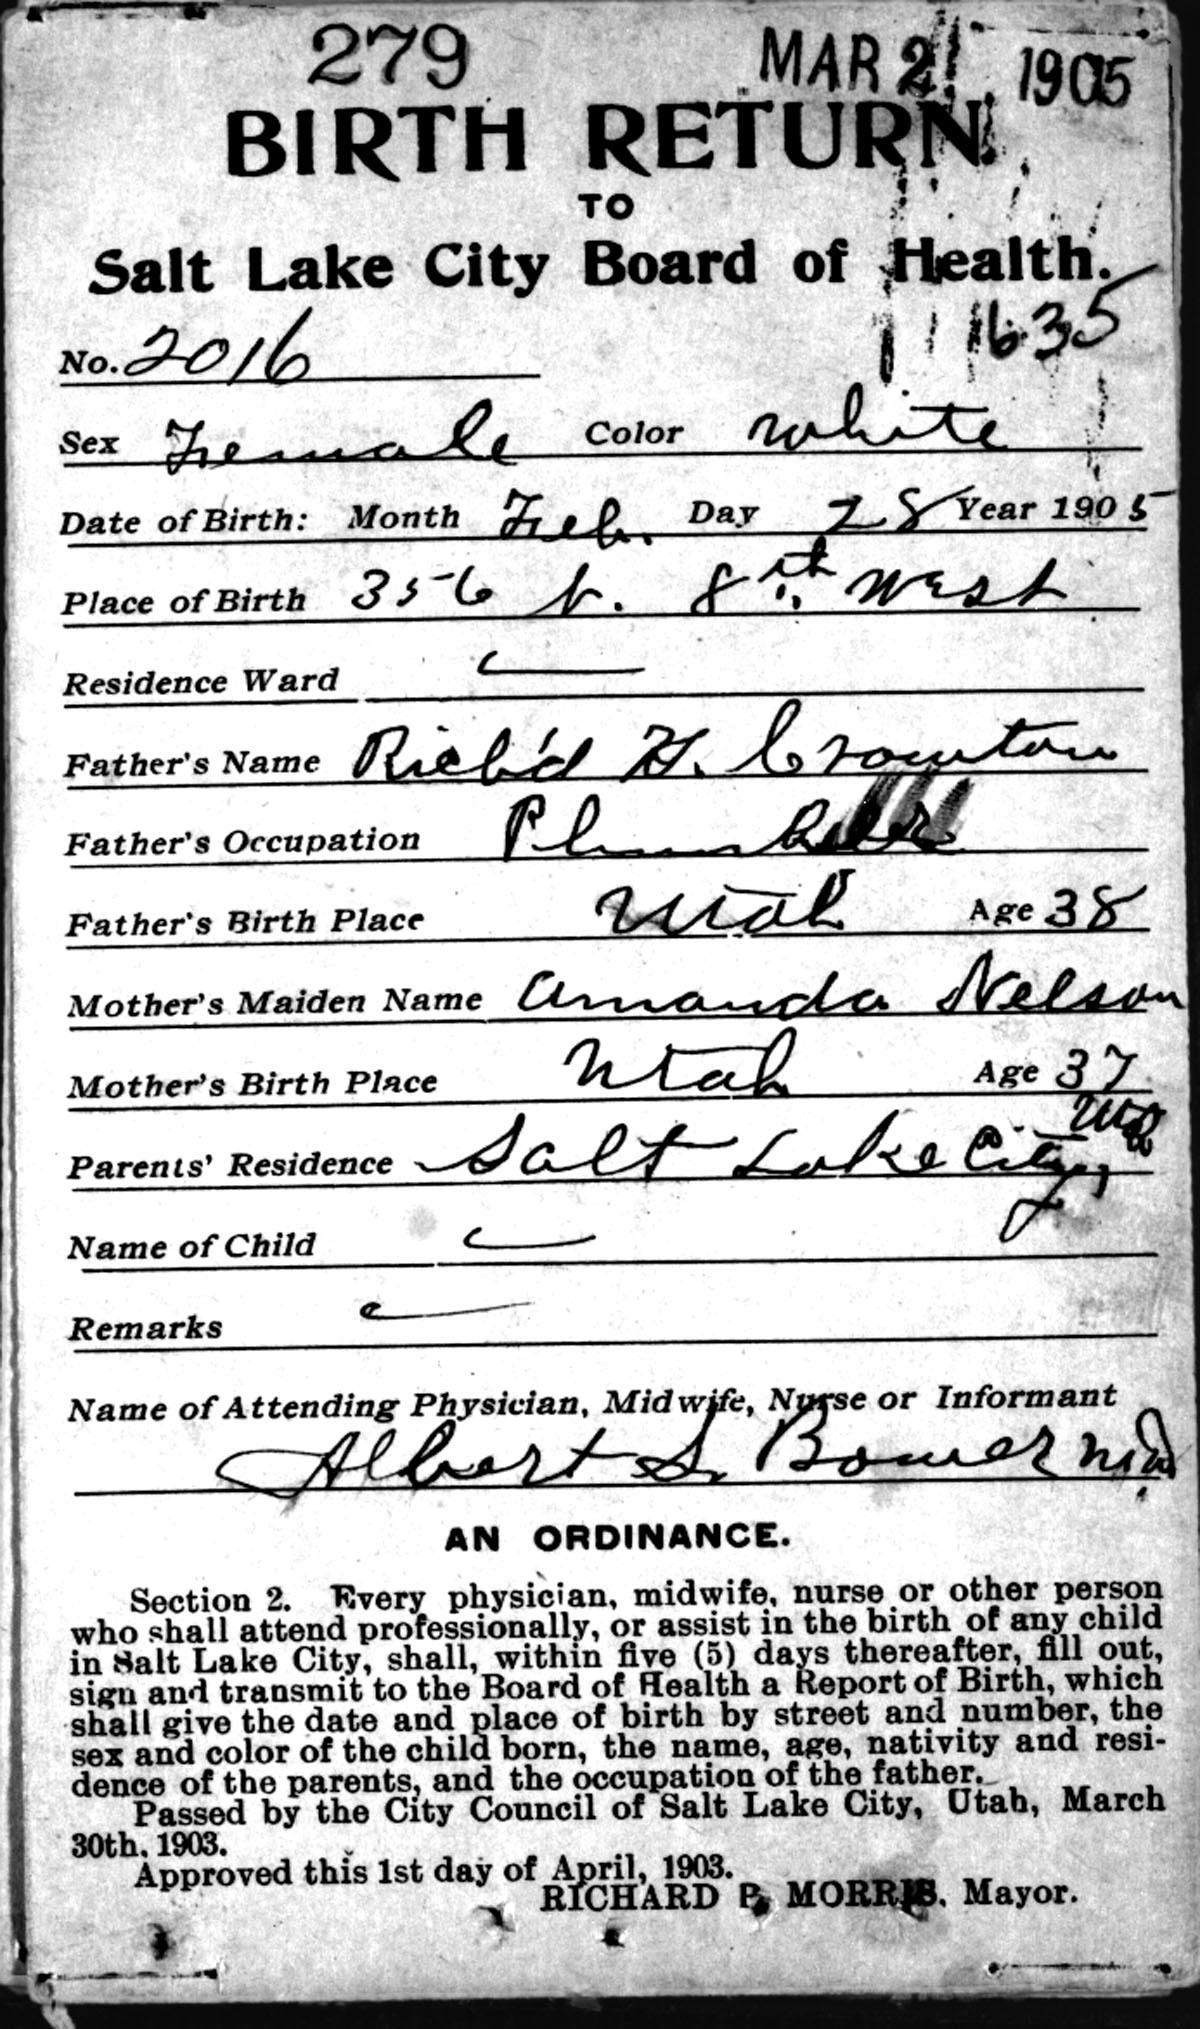 279 MAR 2 1905
BIRTH RETURN
TO
Salt Lake City Board of Health.
1635
No. 2016
Sex Female Color white
Date of Birth: Month Feb. Day 28 Year 1905
Place of Birth 356 N. 8th West
Residence Ward
Father's Name Rich'd H. Crowton
Father's Occupation Plumber
Father's Birth Place Utah Age 38
Mother's Maiden Name Amanda Nelson
Mother's Birth Place Utah Age 37
Parents' Residence Salt Lake City,
Name of Child
Remarks
Name of Attending Physician, Midwife, Nurse or Informant
Albert S. Bower MD
AN ORDINANCE.
Section 2. Every physician, midwife, nurse or other person
who shall attend professionally, or assist in the birth of any child
in Salt Lake City, shall, within five (5) days thereafter, fill out,
sign and transmit to the Board of Health a Report of Birth, which
shall give the date and place of birth by street and number, the
sex and color of the child born, the name, age, nativity and resi-
dence of the parents, and the occupation of the father.
Passed by the City Council of Salt Lake City, Utah, March
30th, 1903.
Approved this 1st day of April, 1903.
RICHARD P. MORRIS, Mayor.